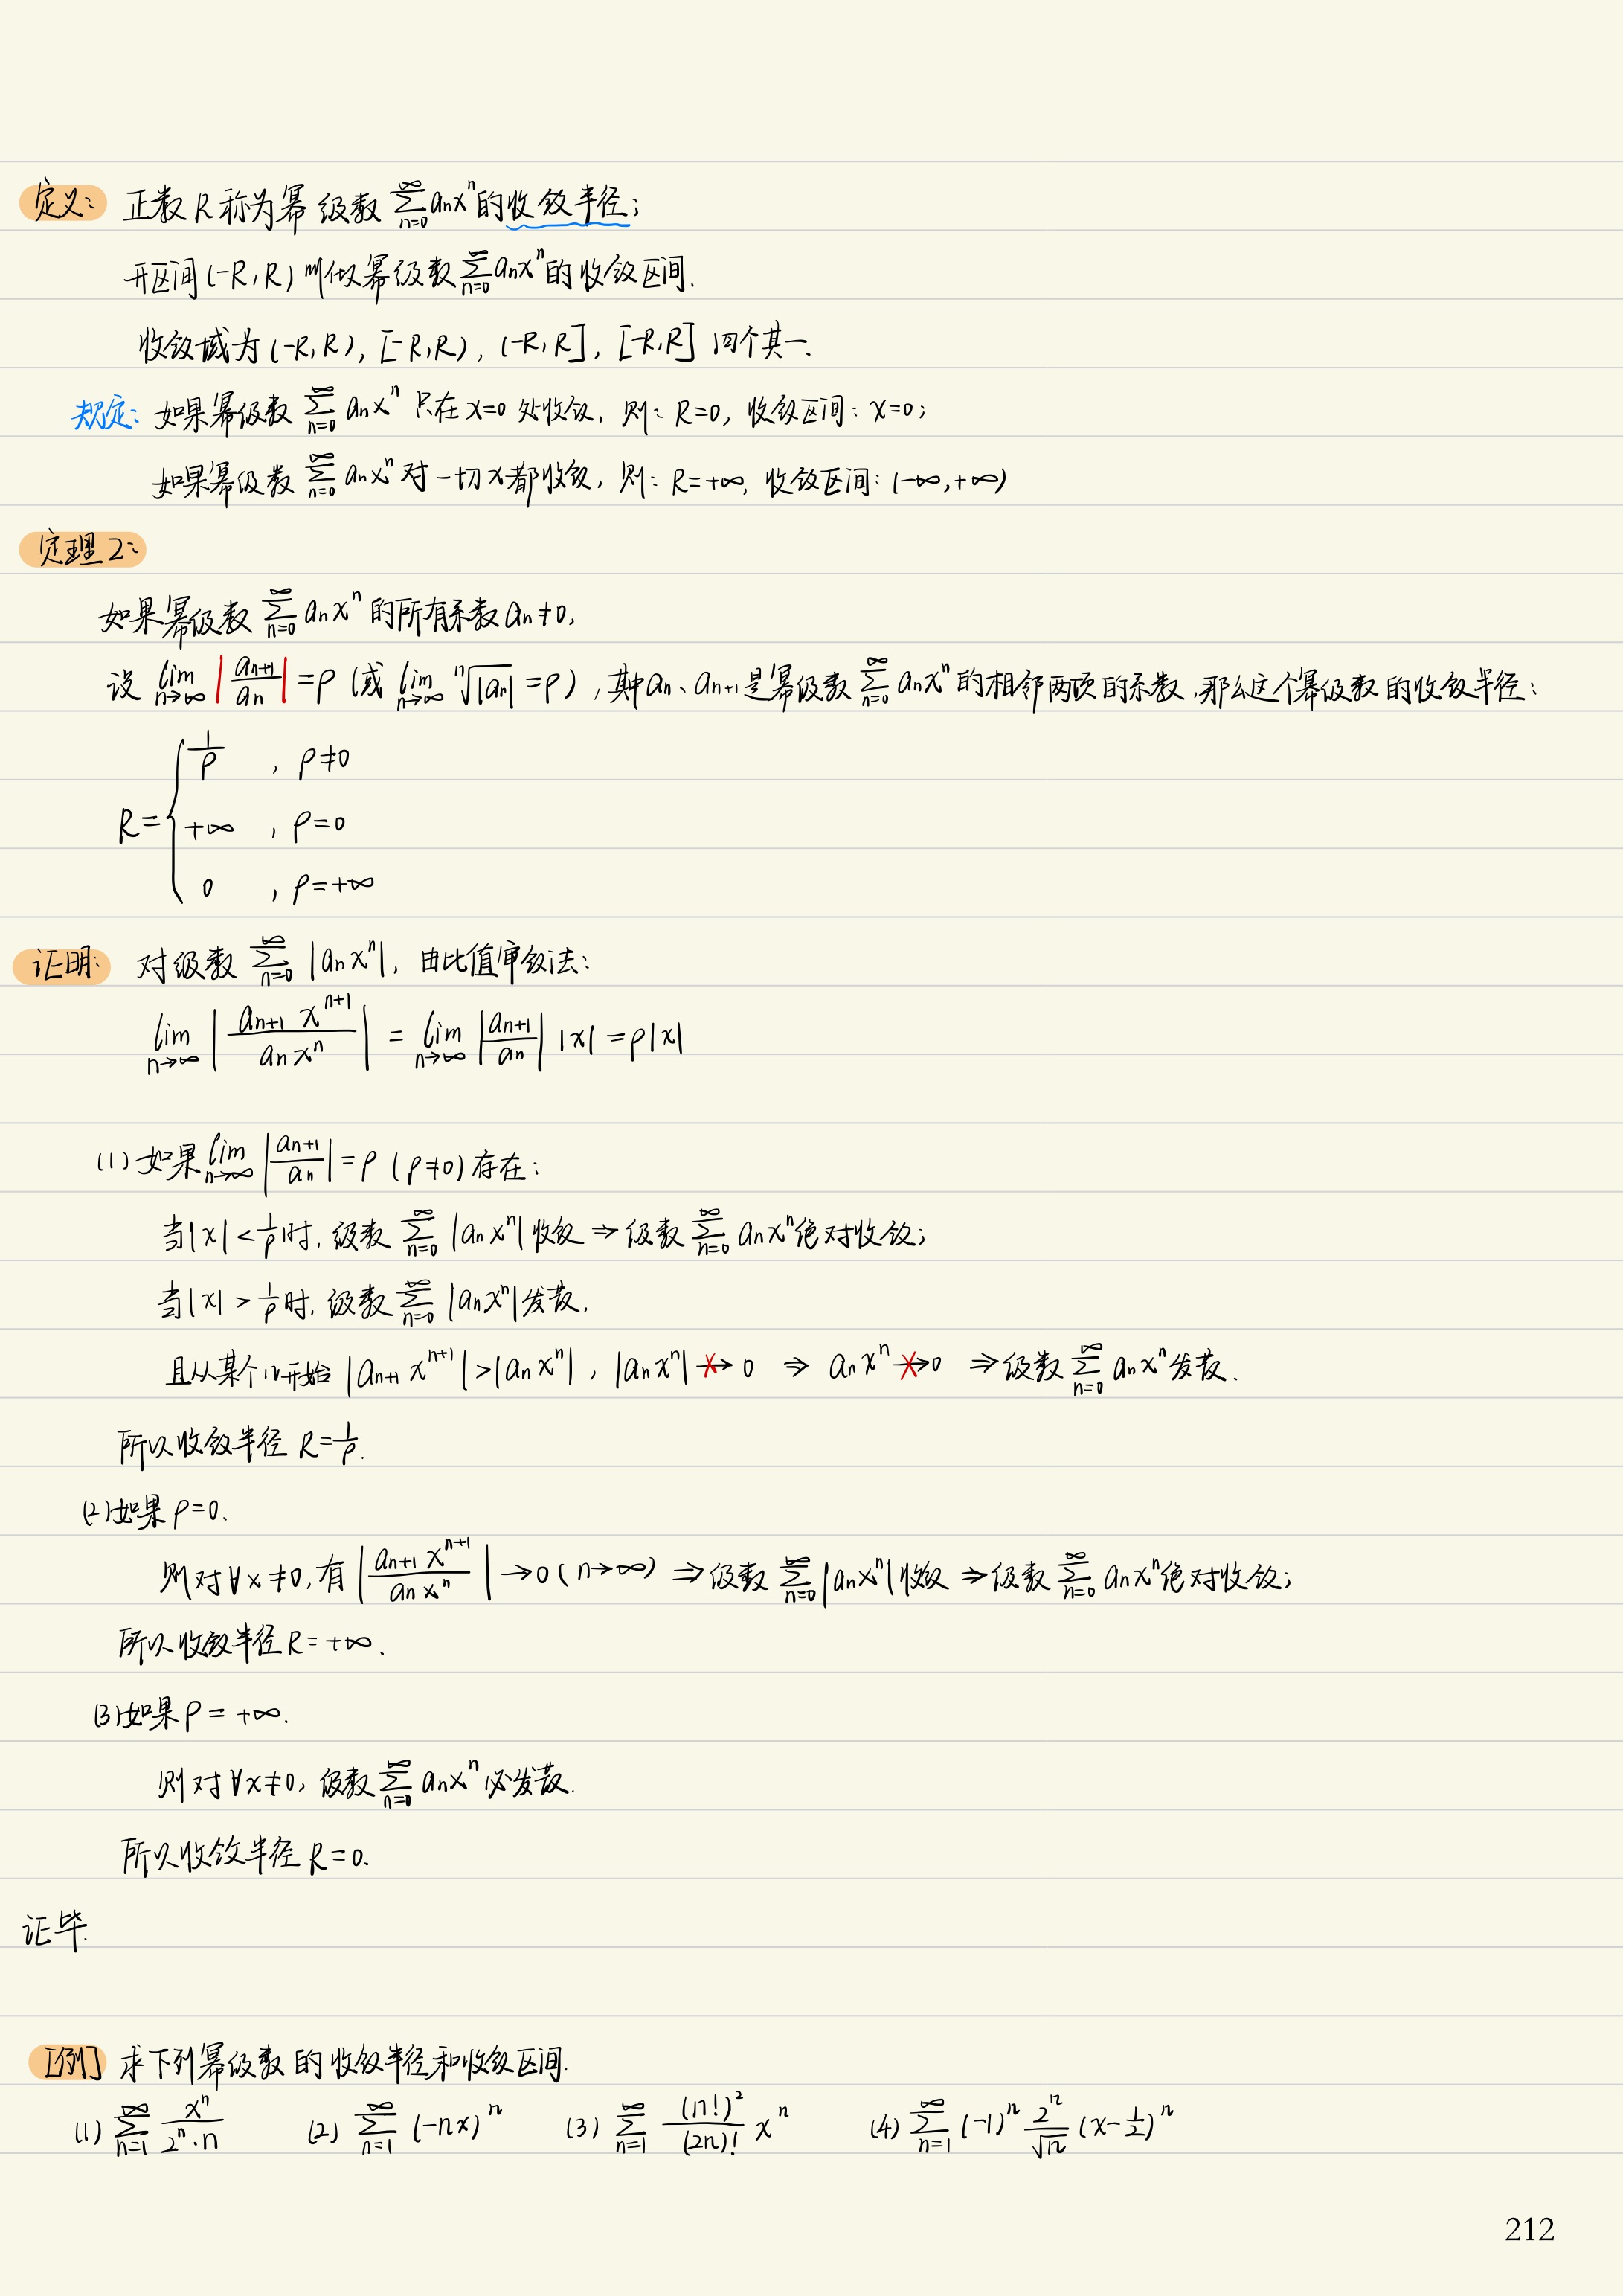 定义: 正数R称为幂级数 $\sum_{n=0}^{\infty} a_n x^n$ 的收敛半径;
开区间(-R,R)叫做幂级数 $\sum_{n=0}^{\infty} a_n x^n$ 的收敛区间.
收敛域为(-R,R), [-R,R), (-R,R], [-R,R] 四个其一.
规定: 如果幂级数 $\sum_{n=0}^{\infty} a_n x^n$ 只在x=0处收敛, 则: R=0, 收敛区间: x=0;
如果幂级数 $\sum_{n=0}^{\infty} a_n x^n$ 对一切x都收敛, 则: R=+∞, 收敛区间: (-∞,+∞)
定理2:
如果幂级数 $\sum_{n=0}^{\infty} a_n x^n$ 的所有系数 $a_n \neq 0$,
设 $\lim_{n\to\infty} \left|\frac{a_{n+1}}{a_n}\right| = \rho$ (或 $\lim_{n\to\infty} \sqrt[n]{|a_n|} = \rho$), 其中 $a_n$、$a_{n+1}$ 是幂级数 $\sum_{n=0}^{\infty} a_n x^n$ 的相邻两项的系数, 那么这个幂级数的收敛半径:
$R = \begin{cases} \frac{1}{\rho}, & \rho \neq 0 \\ +\infty, & \rho = 0 \\ 0, & \rho = +\infty \end{cases}$
证明: 对级数 $\sum_{n=0}^{\infty} |a_n x^n|$, 由比值审敛法:
$\lim_{n\to\infty} \left|\frac{a_{n+1} x^{n+1}}{a_n x^n}\right| = \lim_{n\to\infty} \left|\frac{a_{n+1}}{a_n}\right| |x| = \rho|x|$
(1) 如果 $\lim_{n\to\infty} \left|\frac{a_{n+1}}{a_n}\right| = \rho$ ($\rho \neq 0$) 存在:
当 $|x| < \frac{1}{\rho}$ 时, 级数 $\sum_{n=0}^{\infty} |a_n x^n|$ 收敛 ⇒ 级数 $\sum_{n=0}^{\infty} a_n x^n$ 绝对收敛;
当 $|x| > \frac{1}{\rho}$ 时, 级数 $\sum_{n=0}^{\infty} |a_n x^n|$ 发散,
且从某个n开始 $|a_{n+1} x^{n+1}| > |a_n x^n|$, $|a_n x^n| \not\to 0$ ⇒ $a_n x^n \not\to 0$ ⇒ 级数 $\sum_{n=0}^{\infty} a_n x^n$ 发散.
所以收敛半径 $R = \frac{1}{\rho}$.
(2) 如果 ρ=0.
则对∀x≠0, 有 $\left|\frac{a_{n+1} x^{n+1}}{a_n x^n}\right| \to 0 (n\to\infty)$ ⇒ 级数 $\sum_{n=0}^{\infty} |a_n x^n|$ 收敛 ⇒ 级数 $\sum_{n=0}^{\infty} a_n x^n$ 绝对收敛;
所以收敛半径R=+∞.
(3) 如果 ρ=+∞.
则对∀x≠0, 级数 $\sum_{n=0}^{\infty} a_n x^n$ 必发散.
所以收敛半径 R=0.
证毕.
[例] 求下列幂级数的收敛半径和收敛区间.
(1) $\sum_{n=1}^{\infty} \frac{x^n}{2^n \cdot n}$ (2) $\sum_{n=1}^{\infty} (-nx)^n$ (3) $\sum_{n=1}^{\infty} \frac{(n!)^2}{(2n)!} x^n$ (4) $\sum_{n=1}^{\infty} (-1)^n \frac{2^n}{\sqrt{n}} (x-\frac{1}{2})^n$
212